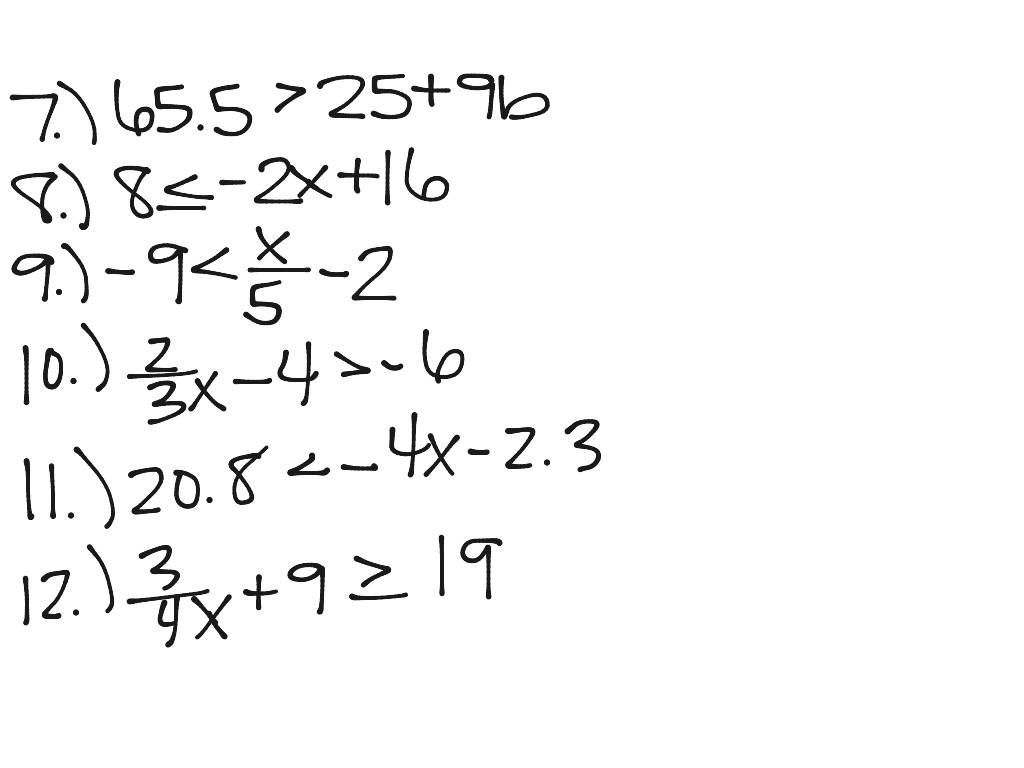 7.) 65.5 > 25+9b
8.) 8 ≤ -2x+16
9.) -9 < x/5 - 2
10.) 2/3x - 4 > -6
11.) 20.8 < -4x - 2.3
12.) 3/4x + 9 ≥ 19